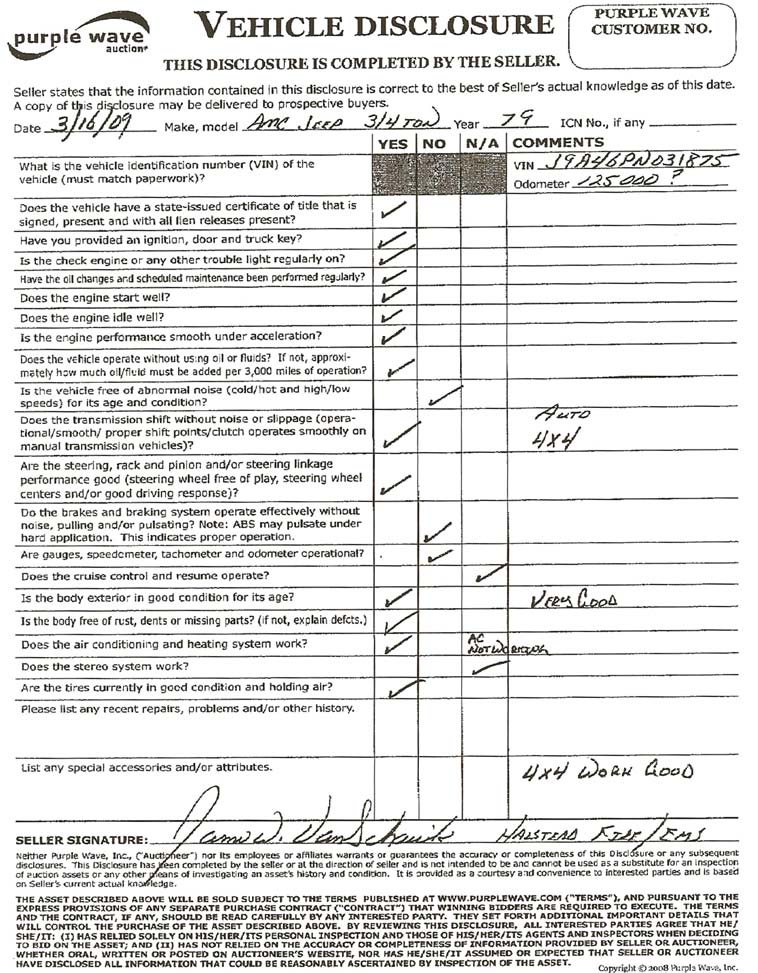 purple wave
auction®
VEHICLE DISCLOSURE
PURPLE WAVE
CUSTOMER NO.
THIS DISCLOSURE IS COMPLETED BY THE SELLER.
Seller states that the information contained in this disclosure is correct to the best of Seller's actual knowledge as of this date.
A copy of this disclosure may be delivered to prospective buyers.
Date 3/16/09 Make, model AMC JEEP 3/4 TON Year 79 ICN No., if any
YES NO N/A COMMENTS
What is the vehicle identification number (VIN) of the
vehicle (must match paperwork)?
VIN J9A46PN031875
Odometer 125000 ?
Does the vehicle have a state-issued certificate of title that is
signed, present and with all lien releases present?
Have you provided an ignition, door and truck key?
Is the check engine or any other trouble light regularly on?
Have the oil changes and scheduled maintenance been performed regularly?
Does the engine start well?
Does the engine idle well?
Is the engine performance smooth under acceleration?
Does the vehicle operate without using oil or fluids? If not, approxi-
mately how much oil/fluid must be added per 3,000 miles of operation?
Is the vehicle free of abnormal noise (cold/hot and high/low
speeds) for its age and condition?
Does the transmission shift without noise or slippage (opera-
tional/smooth/ proper shift points/clutch operates smoothly on
manual transmission vehicles)?
AUTO
4X4
Are the steering, rack and pinion and/or steering linkage
performance good (steering wheel free of play, steering wheel
centers and/or good driving response)?
Do the brakes and braking system operate effectively without
noise, pulling and/or pulsating? Note: ABS may pulsate under
hard application. This indicates proper operation.
Are gauges, speedometer, tachometer and odometer operational?
Does the cruise control and resume operate?
Is the body exterior in good condition for its age?
VERY GOOD
Is the body free of rust, dents or missing parts? (if not, explain defcts.)
Does the air conditioning and heating system work?
AC
NOT WORKING
Does the stereo system work?
Are the tires currently in good condition and holding air?
Please list any recent repairs, problems and/or other history.
List any special accessories and/or attributes.
4X4 WORK GOOD
SELLER SIGNATURE: HALSTEAD FIRE/EMS
Neither Purple Wave, Inc., ("Auctioneer") nor its employees or affiliates warrants or guarantees the accuracy or completeness of this Disclosure or any subsequent
disclosures. This Disclosure has been completed by the seller or at the direction of seller and is not intended to be and cannot be used as a substitute for an inspection
of auction assets or any other means of investigating an asset's history and condition. It is provided as a courtesy and convenience to interested parties and is based
on Seller's current actual knowledge.
THE ASSET DESCRIBED ABOVE WILL BE SOLD SUBJECT TO THE TERMS PUBLISHED AT WWW.PURPLEWAVE.COM ("TERMS"), AND PURSUANT TO THE
EXPRESS PROVISIONS OF ANY SEPARATE PURCHASE CONTRACT ("CONTRACT") THAT WINNING BIDDERS ARE REQUIRED TO EXECUTE. THE TERMS
AND THE CONTRACT, IF ANY, SHOULD BE READ CAREFULLY BY ANY INTERESTED PARTY. THEY SET FORTH ADDITIONAL IMPORTANT DETAILS THAT
WILL CONTROL THE PURCHASE OF THE ASSET DESCRIBED ABOVE. BY REVIEWING THIS DISCLOSURE, ALL INTERESTED PARTIES AGREE THAT HE/
SHE/IT: (I) HAS RELIED SOLELY ON HIS/HER/ITS PERSONAL INSPECTION AND THOSE OF HIS/HER/ITS AGENTS AND INSPECTORS WHEN DECIDING
TO BID ON THE ASSET; AND (II) HAS NOT RELIED ON THE ACCURACY OR COMPLETENESS OF INFORMATION PROVIDED BY SELLER OR AUCTIONEER,
WHETHER ORAL, WRITTEN OR POSTED ON AUCTIONEER'S WEBSITE, NOR HAS HE/SHE/IT ASSUMED OR EXPECTED THAT SELLER OR AUCTIONEER
HAVE DISCLOSED ALL INFORMATION THAT COULD BE REASONABLY ASCERTAINED BY INSPECTION OF THE ASSET.
Copyright © 2008 Purple Wave, Inc.